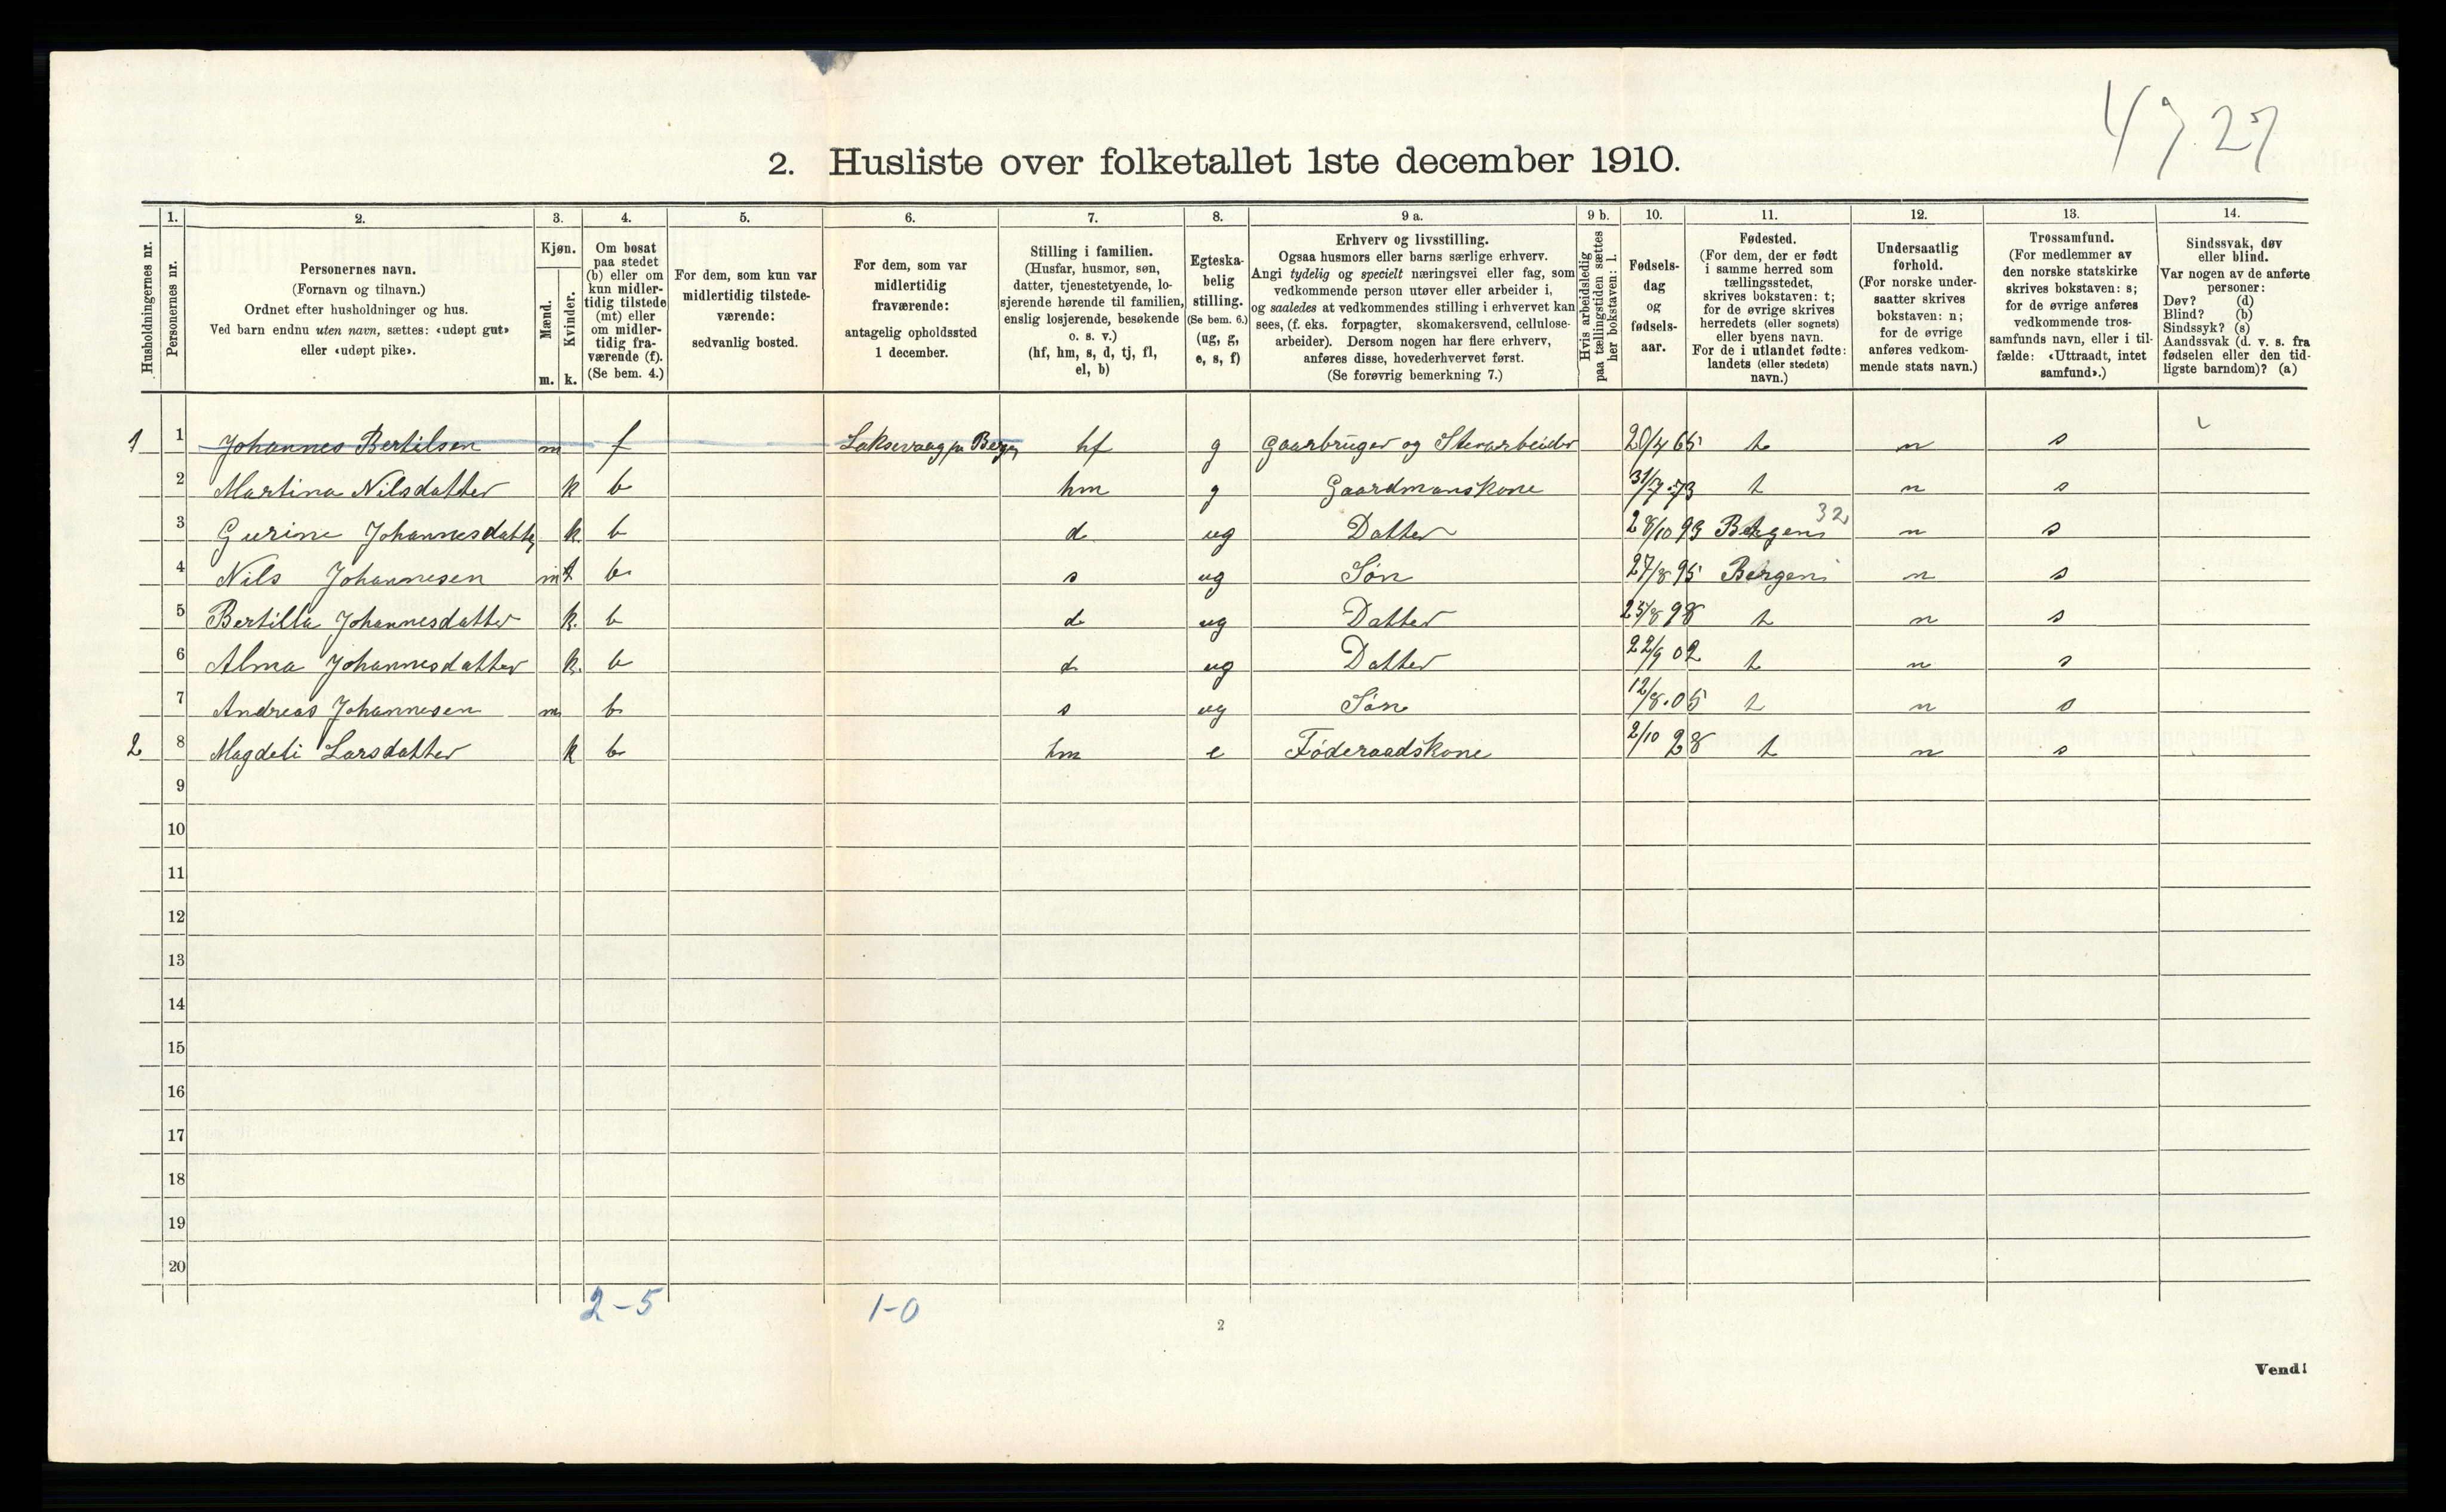 47. 27
2. Husliste over folketallet 1ste december 1910.
Husholdningernes nr.
1.
Personernes nr.
2.
Personernes navn.
(Fornavn og tilnavn.)
Ordnet efter husholdninger og hus.
Ved barn endnu uten navn, sættes: «udøpt gut»
eller «udøpt pike».
3.
Kjøn.
Mænd.
m.
Kvinder.
k.
4.
Om bosat
paa stedet
(b) eller om
kun midler-
tidig tilstede
(mt) eller
om midler-
tidig fra-
værende (f).
(Se bem. 4.)
5.
For dem, som kun var
midlertidig tilstede-
værende:
sedvanlig bosted.
6.
For dem, som var
midlertidig
fraværende:
antagelig opholdssted
1 december.
7.
Stilling i familien.
(Husfar, husmor, søn,
datter, tjenestetyende, lo-
sjerende hørende til familien,
enslig losjerende, besøkende
o. s. v.)
(hf, hm, s, d, tj, fl,
el, b)
8.
Egteska-
belig
stilling.
(Se bem. 6.)
(ug, g,
e, s, f)
9 a.
Erhverv og livsstilling.
Ogsaa husmors eller barns særlige erhverv.
Angi tydelig og specielt næringsvei eller fag, som
vedkommende person utøver eller arbeider i,
og saaledes at vedkommendes stilling i erhvervet kan
sees, (f. eks. forpagter, skomakersvend, cellulose-
arbeider). Dersom nogen har flere erhverv,
anføres disse, hovederhvervet først.
(Se forøvrig bemerkning 7.)
9 b.
Hvis arbeidsledig
paa tællingstiden sættes
her bokstaven: l.
10.
Fødsels-
dag
og
fødsels-
aar.
11.
Fødested.
(For dem, der er født
i samme herred som
tællingsstedet,
skrives bokstaven: t;
for de øvrige skrives
herredets (eller sognets)
eller byens navn.
For de i utlandet fødte:
landets (eller stedets)
navn.)
12.
Undersaatlig
forhold.
(For norske under-
saatter skrives
bokstaven: n;
for de øvrige
anføres vedkom-
mende stats navn.)
13.
Trossamfund.
(For medlemmer av
den norske statskirke
skrives bokstaven: s;
for de øvrige anføres
vedkommende tros-
samfunds navn, eller i til-
fælde: «Uttraadt, intet
samfund».)
14.
Sindssvak, døv
eller blind.
Var nogen av de anførte
personer:
Døv? (d)
Blind? (b)
Sindssyk? (s)
Aandssvak (d. v. s. fra
fødselen eller den tid-
ligste barndom)? (a)
1 1 Johannes Bertilsen m f Laksevaag pr Bergen hf g Gaarbruger og Stenarbeider 20/4 65 t n s
2 Martina Nilsdatter k b hm g Gaardmanskone 31/7.73 t n s
32
3 Gurine Johannesdatter k b d ug Datter 28/10 93 Bergen n s
4 Nils Johannesen m b s ug Søn 27/8 95 Bergen n s
5 Bertilla Johannesdatter k. b d ug Datter 25/8 98 t n s
6 Alma Johannesdatter k. b d ug Datter 22/9 02 t n s
7 Andreas Johannesen m b s ug Søn 12/8.05 t n s
2 8 Magdeli Larsdatter k b hm e Føderaadskone 2/10 28 t n s
9
10
11
12
13
14
15
16
17
18
19
20
2-5 1-0
2
Vend!